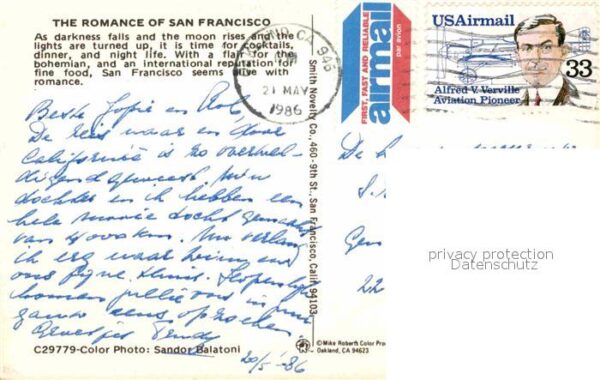 THE ROMANCE OF SAN FRANCISCO
As darkness falls and the moon rises and the
lights are turned up, it is time for cocktails,
dinner, and night life. With a flair for the
bohemian, and an international reputation for
fine food, San Francisco seems alive with
romance.
Beste Jopie en Rob
De reis naar en door
Californië is zo overwel-
digend geweest. Mijn
dochter en ik hebben een
hele mooie tocht gemaakt
van 4 weken. Nu verlang
ik erg naar huis en
ons fijne thuis. Hopenlijk
komen jullie ons in juni
eens opzoeken.
Groetjes Trudy
20/5 -86
C29779-Color Photo: Sandor Balatoni
Smith Novelty Co., 460-9th St., San Francisco, Calif. 94103
©Mike Roberts Color Pro
Oakland, CA 94623
OAKLAND, CA 946
21 MAY
1986
FIRST, FAST AND RELIABLE
airmail
par avion
USAirmail
33
Alfred V. Verville
Aviation Pioneer
De
Gen
22
privacy protection
Datenschutz